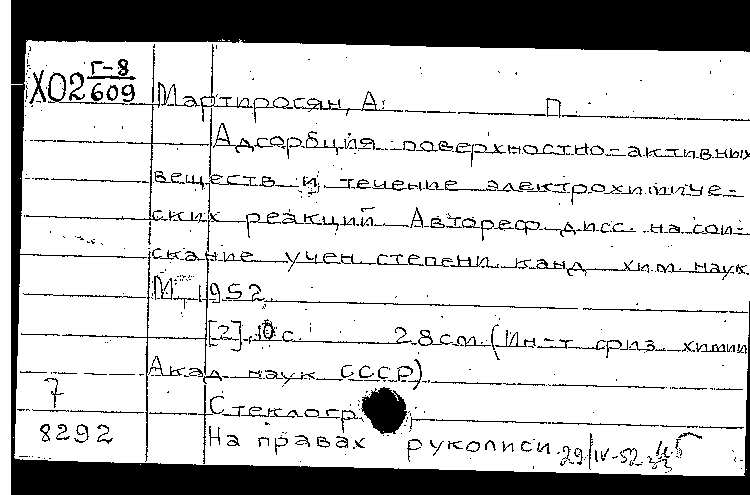 Г-8
Х02 609 Мартиросян, А. П
Адсорбция поверхностно-активных
веществ и течение электрохимиче-
ских реакций Автореф дисс. на сои-
скание учен степени канд хим. наук
М., 1952
[2], 10 с. 28 см. (Ин-т физ химии
Акад наук СССР)
7
Стеклогр
8292
На правах рукописи. 29/IV-52